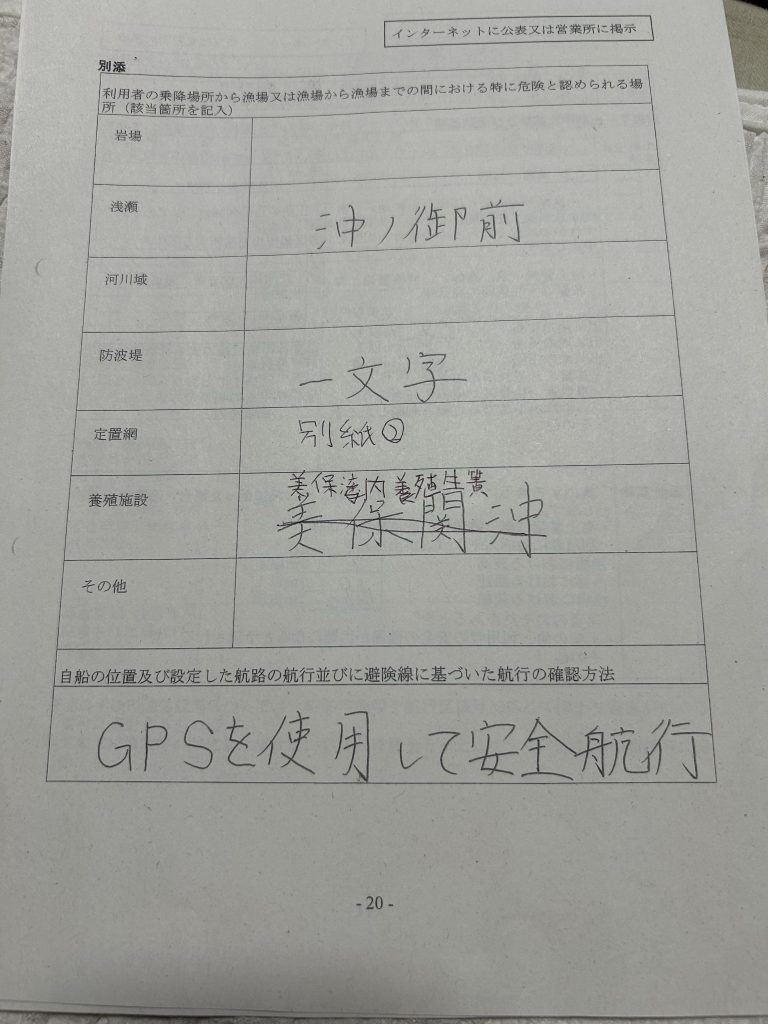 インターネットに公表又は営業所に掲示
別添
利用者の乗降場所から漁場又は漁場から漁場までの間における特に危険と認められる場
所（該当箇所を記入）
岩場
浅瀬
沖ノ御前
河川域
防波堤
一文字
定置網
別紙②
養殖施設
美保湾内養殖生簀
美保関沖
その他
自船の位置及び設定した航路の航行並びに避険線に基づいた航行の確認方法
GPSを使用して安全航行
- 20 -